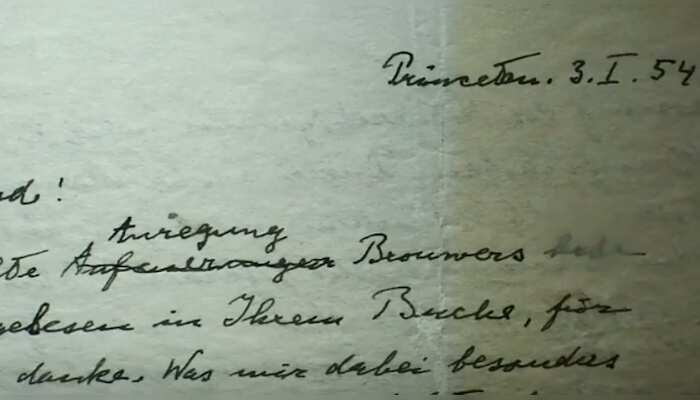 Princeton. 3. I. 54
nd!
Anregung
lte Aufmunterungen Brouwers habe
gelesen in Ihrem Buche, für
danke. Was mir dabei besonders